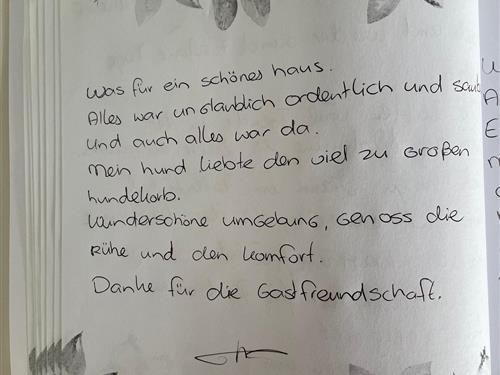 Was für ein schönes haus.
Alles war unglaublich ordentlich und saub
und auch alles war da.
Mein hund liebte den viel zu Großen
hundekorb.
Wunderschöne umgebung, Genoss die
Rühe und den Komfort.
Danke für die Gastfreundschaft.